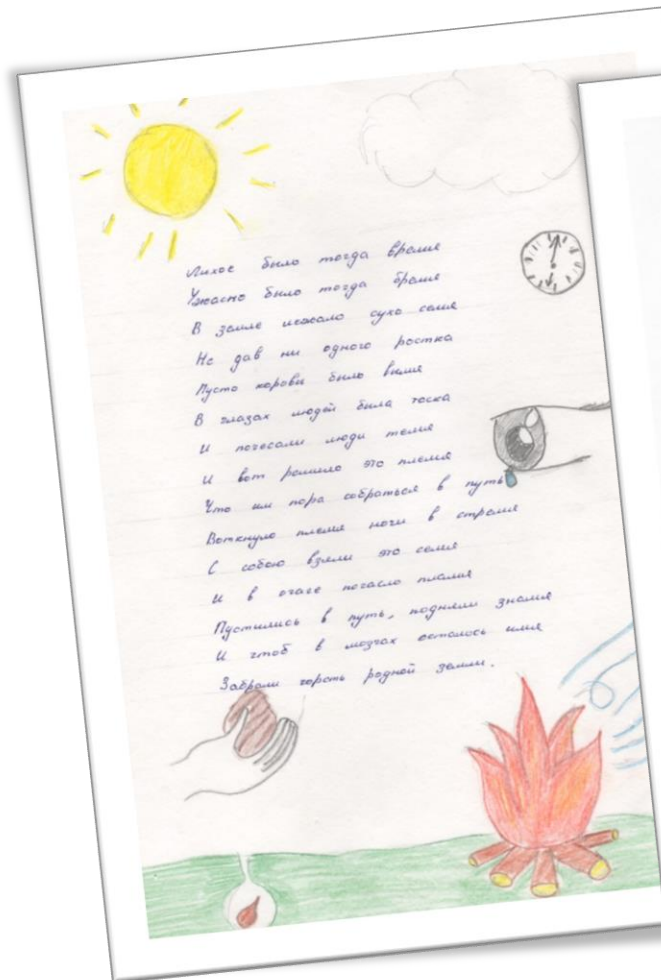 Лихое было тогда время
Ужасно было тогда бремя
В земле лежало сухо семя
Не дав ни одного ростка
Пусто коровы было вымя
В глазах людей была тоска
И почесали люди темя
И вот решило это племя
Что им пора собраться в путь
Воткнуло племя ноги в стремя
С собою взяли это семя
И в очаге погасло пламя
Пустились в путь, подняли знамя
И чтоб в мозгах осталось имя
Забрали горсть родной земли.